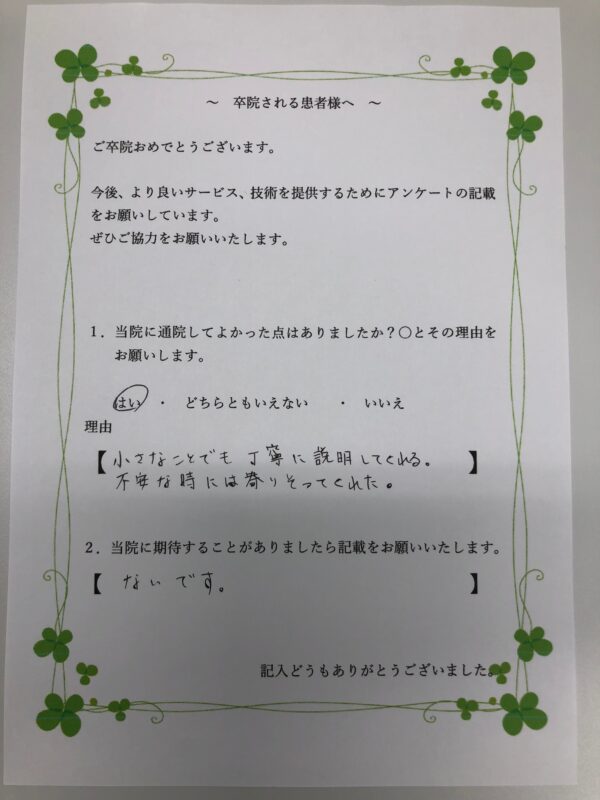 ～　卒院される患者様へ　～
ご卒院おめでとうございます。
今後、より良いサービス、技術を提供するためにアンケートの記載
をお願いしています。
ぜひご協力をお願いいたします。
１．当院に通院してよかった点はありましたか？〇とその理由を
お願いします。
はい　・　どちらともいえない　　・　いいえ
理由
【小さなことでも丁寧に説明してくれる。】
不安な時には寄りそってくれた。
２．当院に期待することがありましたら記載をお願いいたします。
【　ないです。　】
記入どうもありがとうございました。